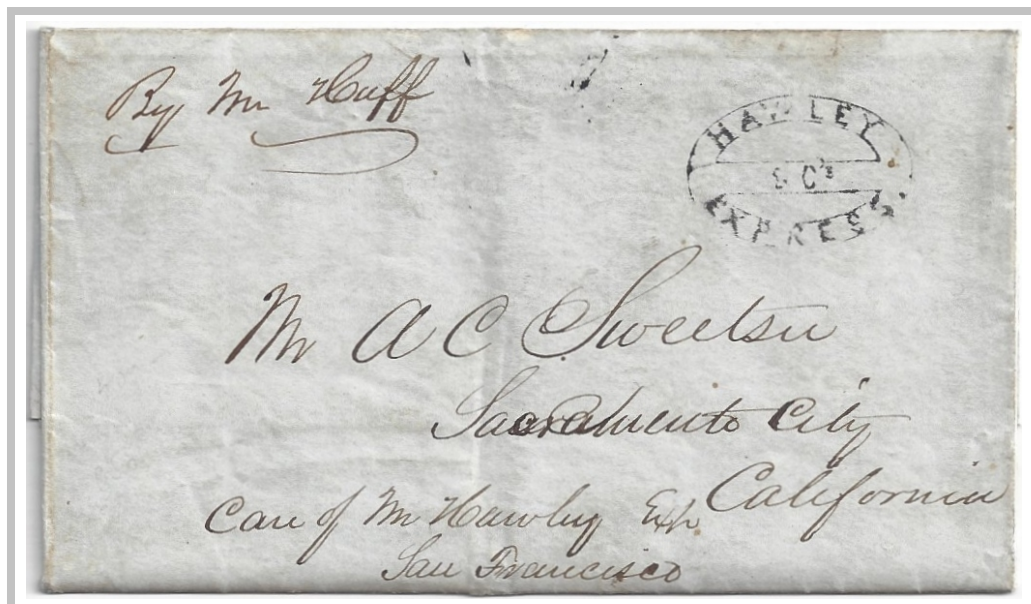 By Mr Huff
HAWLEY
& Co's
EXPRESS.
Mr A C Sweetser
Sacramento City
California
Care of Mr Hawley Exp.
San Francisco